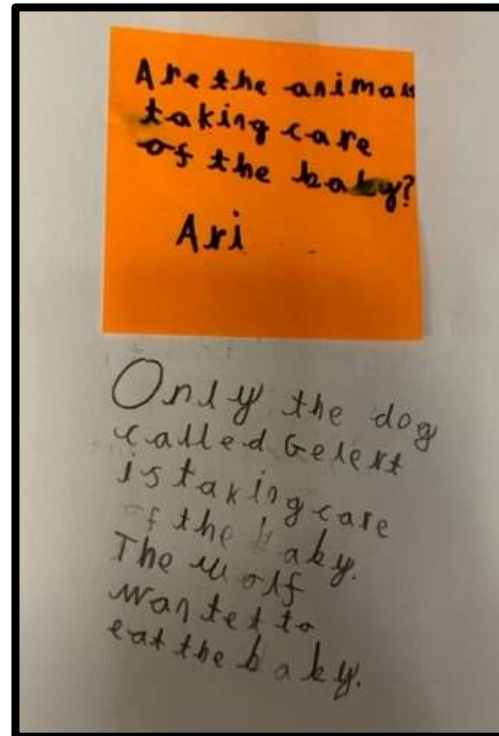 Are the animals
taking care
of the baby?
Ari
Only the dog
called Gelert
is taking care
of the baby.
The wolf
wantet to
eat the baby.